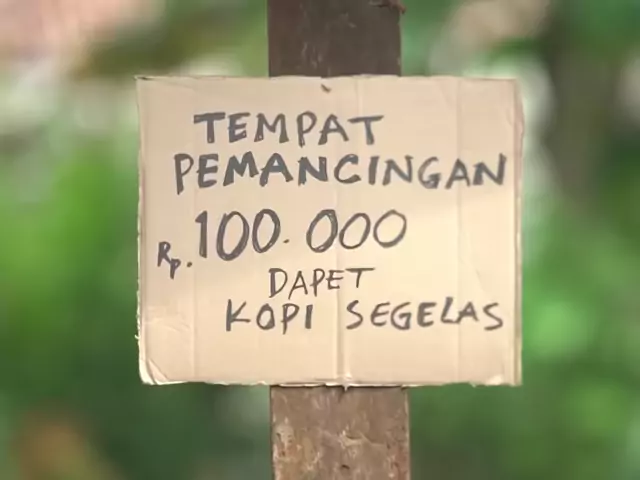 TEMPAT
PEMANCINGAN
Rp. 100.000
DAPET
KOPI SEGELAS